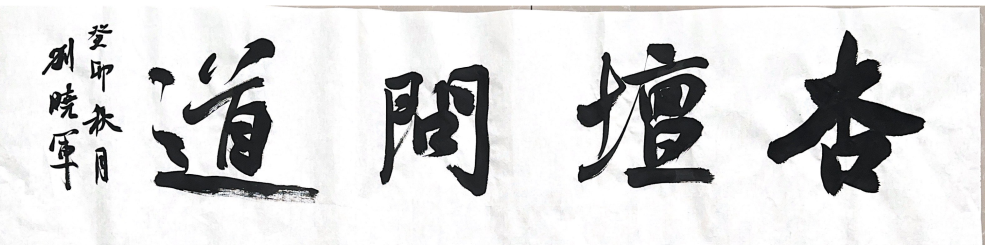 杏壇問道
癸卯秋月
劉曉軍